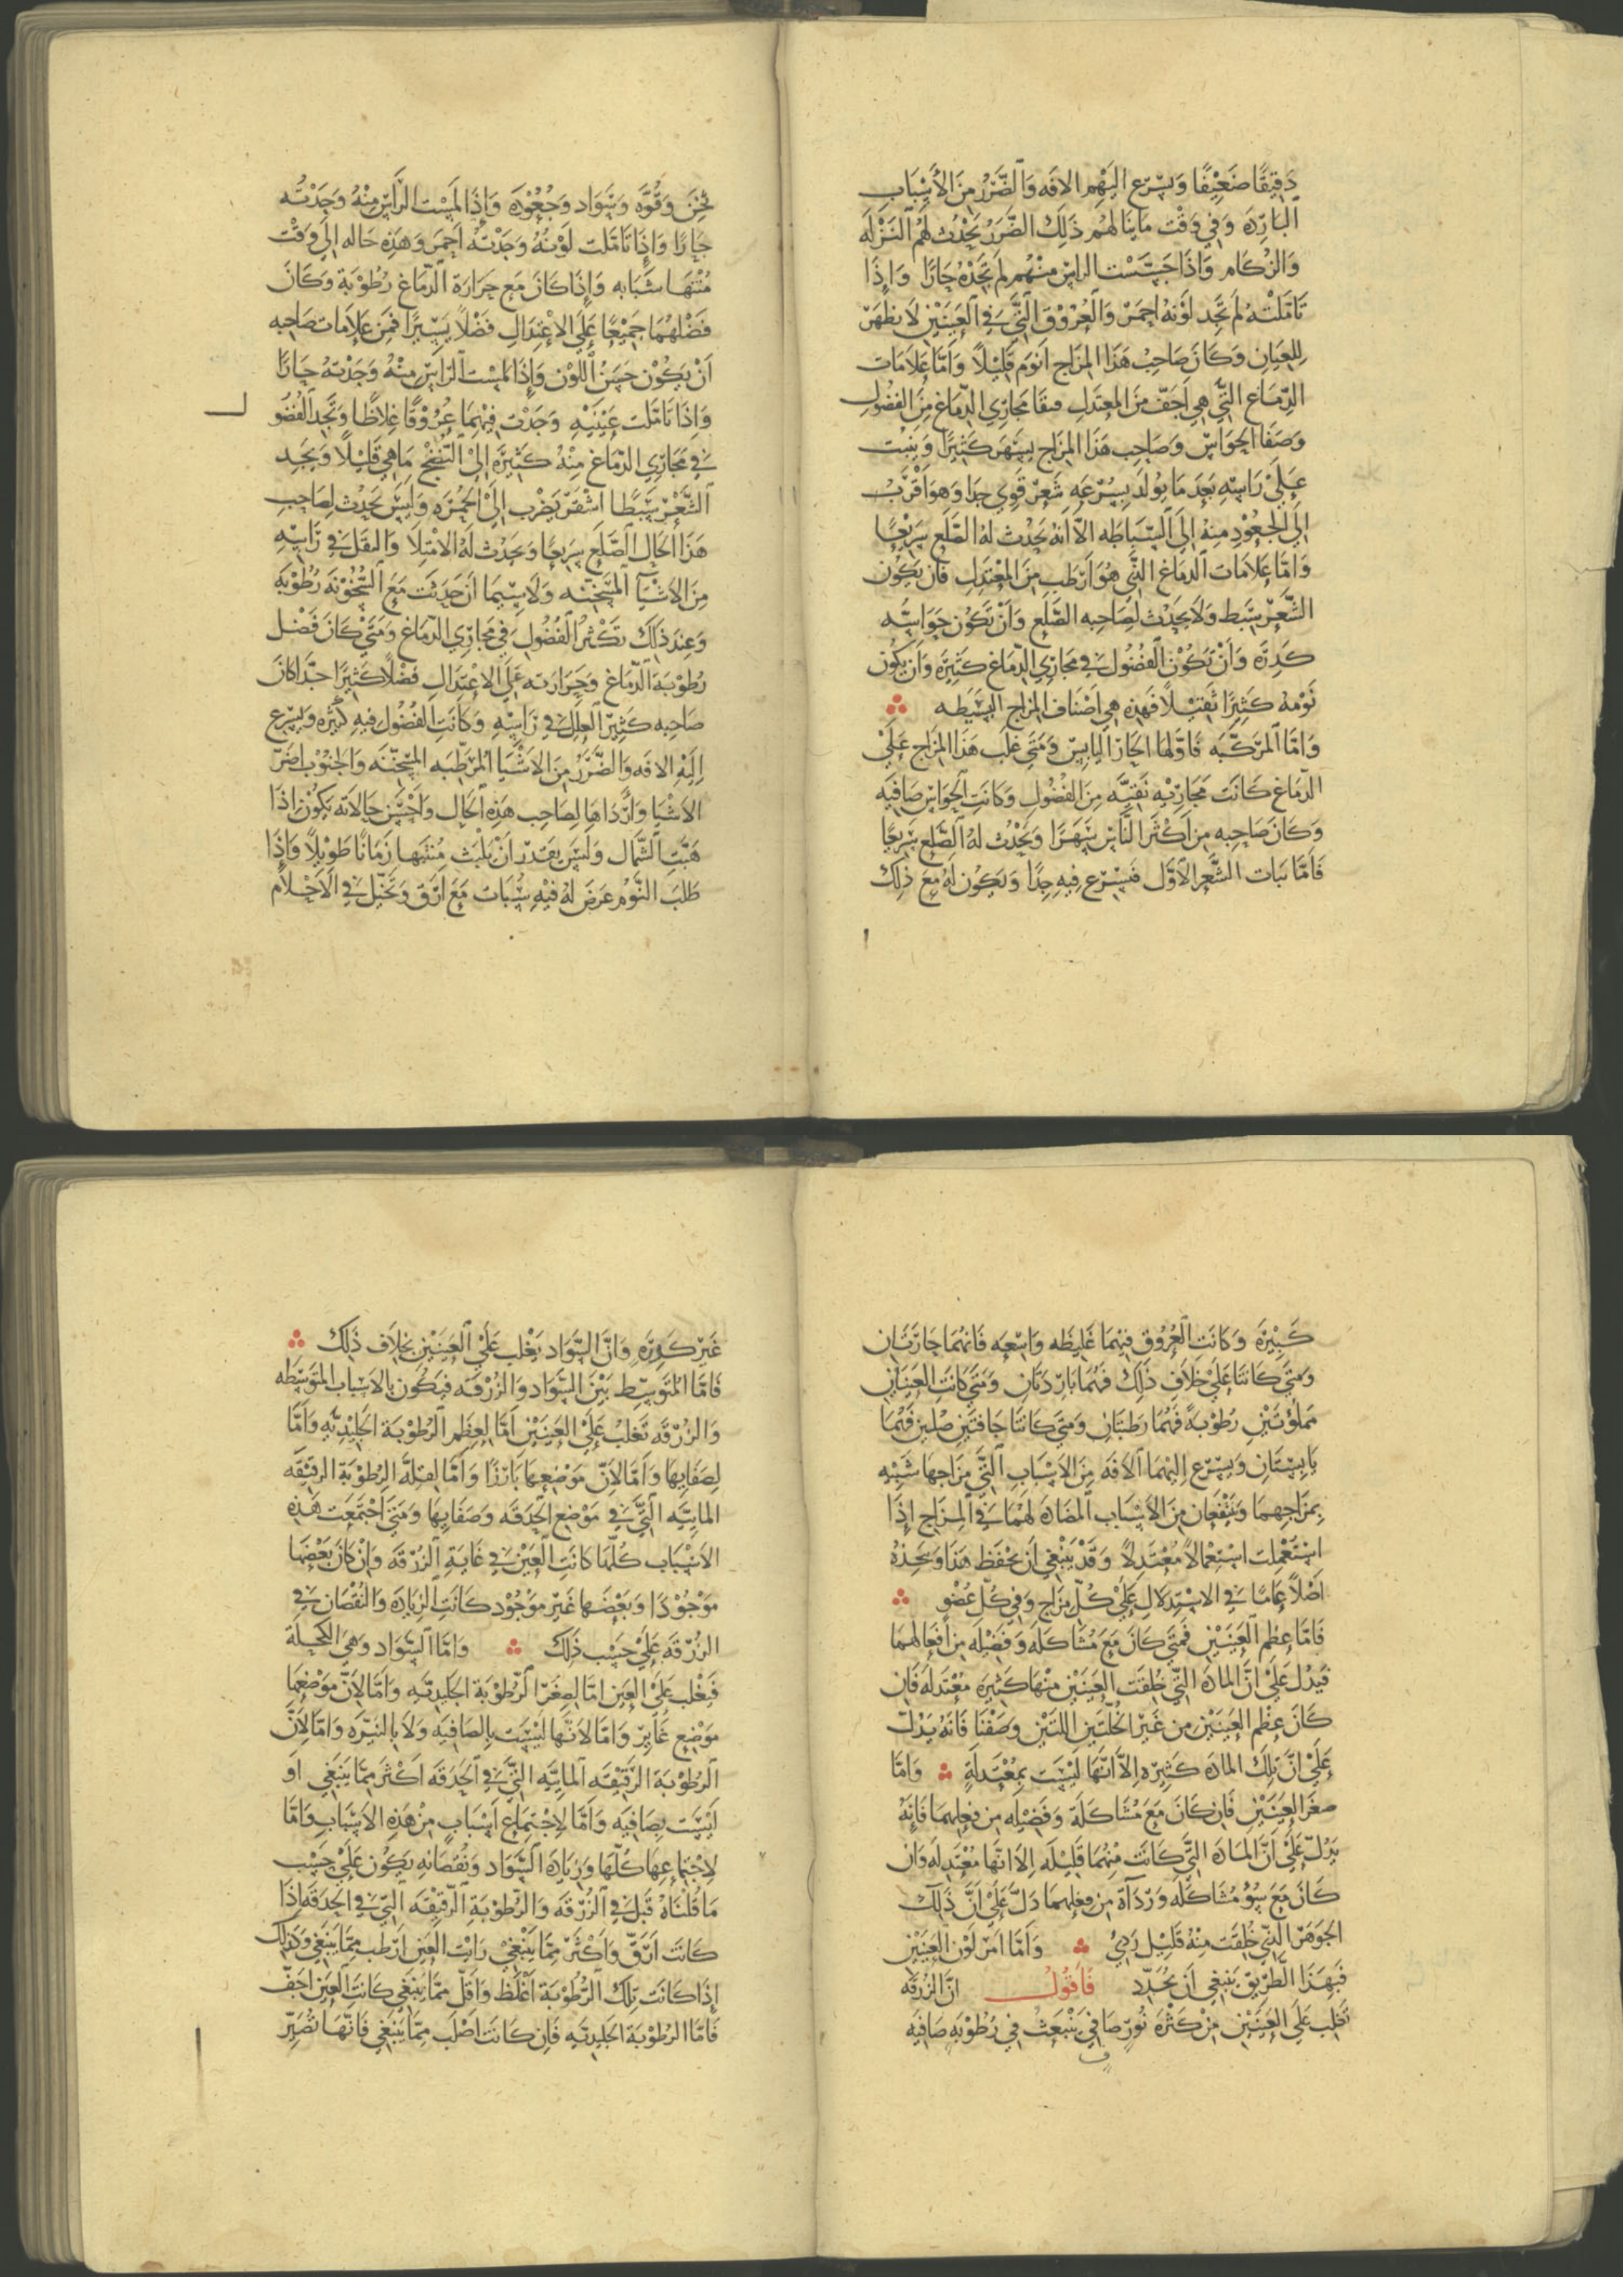 دَقِيْقًا ضَعِيْفًا وَيُسْرِع اليْهِم الافَه وَالضَّرَرُ مِنَ الأَسْبَابِ
البَارِدَه وَفِي وَقْت مَا يَنَالهُم ذَلِكَ الضَرَرُ يَحْدُث لَهُم النَّزْلَه
وَالزُكَام وَاذَا جَسَّسْت الراسَ مِنْهُم لَم تَجَدْهُ حَارًا وَاِذَا
تَامَلْتَهُ لَم تَجِد لَوْنَهُ احمَرَ وَالعُرُوْق الَّتِي فِي العَيْنَيْنِ لَا تظهَر
لِلعِيَانِ وَكَانَ صَاحِبُ هَذَا المِزَاج اَنْوَم قَلِيْلاً وَاَمَّا عَلَامَات
الدِّمَاغ الَّتِي هِي اَجَفّ مِنَ المعتَدِلِ فنقَا مَجَارِي الدّمَاغ مِنَ الفضُولِ
وَصَفَا الحَوَاسّ وَصَاحِب هَذَا المِزَاج يَسْهَر كَثِيْرًا وَينبُت
عَلَي رَاسِهِ بَعدَ مَا يُولَد بِسُرْعَه شَعَرْ قَوِي جدا وَهوَ اَقْرَبُ
اِلَي الجعُوْدِ مِنهُ اِلَي السَّبَاطَه الاَّ انَه يَحْدُث لهُ الصَّلَع سَرِيْعًا
وَامَّا عَلامَات الدّمَاغ الَّذِي هُوَ اَرْطَبُ مِنَ المُعْتَدِلِ فَان يَكُوْن
الشَّعرُ سَبط وَلَا يَحدُث لصَاحِبه الصَّلَع وَاَنْ تَكُوْن حَوَاسُّه
كَدِرَه وَاَنْ تَكُوْن الفُضُوْل فِي مَجَارِي الدِّمَاغ كَثِيْرَه وَاَن يَكُوْن
نَوْمهُ كَثِيْرًا ثَقِيْلاً فَهَذِه هِي اَصْنَاف المزَاج البسِيْطَه
وَامَّا المرَكَّبَه فَاوَّلهَا الحَارّ اليَابِسْ وَمَتَى غَلَب هَذَا المِزَاج عَلَيْ
الدِّمَاغ كَانَت مَجَارِيْه نَقِيَّه مِنَ الفُضُول وَكَانَت الحَواسّ صَافيَه
وَكَانَ صَاحِبه مِن اَكْثَر النَّاسْ سَهَرًا وَيَحْدُث لَهُ الصَّلَع سَرِيعًا
فَاَمَّا نَبَات الشَّعَر الاوَّل فَيُسْرع فِيهِ جِدًّا وَيَكُوْن لَهُ مَعَ ذَلِكَ
ثِخَن وَقُوَّه وَسَوَاد وَجُعُوْدَه وَاِذَا لمَسْت الرَّاسَ مِنْهُ وَجَدْتَه
حَارًا وَاِذَا تَامَلت لَوْنهُ وَجَدْتهُ اَحمَر وَهَذِه حَاله اِلَى وَقْت
مُنْتهَا شَبَابه وَاِذَا كَانَ مَع حَرَارَة الدِّمَاغ رُطُوْبَة وَكَانَ
فَضْلهُمَا جَمِيْعًا عَلَى الاِعْتِدَالِ فَضْلاً يَسِيْرًا فَمِن عَلَامَات صَاحِبه
اَنْ يَكُوْن حَسَنُ اللَّوْن وَاِذَا لمَسْت الرَاسَ مِنْهُ وَجَدْتهُ حَارًا
وَاِذَا تَامَّلت عَيْنَيْهِ وَجَدْت فِيْهِمَا عُرُوْقًا غِلاَظًا وَتَجِد الفُضُو
فِي مَجَارِي الدِّمَاغ مِنْهُ كَثِيْرَه اِلَى النُّضْج مَا هِي قَلِيْلاً وَيَجد
الشَّعَرْ سَبطًا اشْقَر يَضْرب اِلَى الحُمْرَه وَلَيْسَ يَحْدُث لِصَاحِبِ
هَذَا الحَال الصَّلَع سَرِيعًا وَيَحْدُث لَهُ الامْتِلَا وَالثقَل فِي رَاسِه
مِنَ الاشْيَآ المسَخِّنَه وَلَا سِيّمَا اَنْ حَدَثَت مَعَ السُّخُوْنَه رُطُوْبَة
وَعِندَ ذَلكَ تَكْثُرُ الفُضُولُ فِي مَجَارِي الدّمَاغ وَمَتَى كَانَ فَضْل
رُطُوْبَة الدّمَاغ وَحَرَارَته عَلَي الاِعْتِدَال فَضْلاً كَثِيْرًا جدّا كَانَ
صَاحِبه كَثِيْر العِلَل فِي رَاسِهِ وَكَانَتِ الفُضُوْل فِيهِ كَثيْرَه وَيسْرع
اِلَيْهِ الافَه وَالضَّرَرُ مِنَ الاشْيَا المُرَطِّبَه المُسَخِّنَه وَالجَنُوْب اَضَرّ
الاشْيَا وَاَرْدَاهَا لِصَاحِب هَذِه الحَال وَاَحْسَن حَالَاته يَكُوْن اِذَا
هَبَّتِ الشَّمَال وَلَيسَ يَقدِر اَنْ يَلْبَث مُنْتَبِهًا زَمَانًا طَوِيْلاً وَاِذَا
طَلَبَ النَّوْم عَرَضَ لَهُ فيْهِ سُبَات مَعَ اَرَق وَتَخَيّل فِي الاَحْلاَم
كَبِيْرَة وَكَانَتِ العُرُوق فِيْهمَا غَلِيظَه وَاسِعَه فَانهُمَا حَارّتَان
وَمَتَى كَانَتَا عَلَي خلاَفِ ذَلِكَ فَهُمَا بَارِدَتَانِ وَمَتَى كَانَت العَيْنَان
مَملُؤتَيْنِ رُطُوْبَةً فَهُمَا رَطبَتَانِ وَمَتى كَانتَا جَافتَيْنِ صُلبتَيْن فَهُمَا
يَابِسَتَانِ وَيُسْرع اِليْهمَا الافَه مِنَ الاَسْبَابِ الَّتِي مِزَاجهَا شَبِيْه
بِمزَاجِهِمَا وَيَنْتَفِعَان مِنَ الاَسْبَاب المضَادَه لَهُمَا فِي المِزَاج اِذَا
اسْتعْمِلت اسْتِعْمَالاً مُعْتَدِلاً وَقَدْ يَنْبَغِي اَن يحْفَظ هَذَا وَيَتخذهُ
اَصْلاً عَامًّا فِي الاسْتِدلَال عَلَيْ كُلّ مِزَاج وَفي كُلّ عُضْو
فَامَّا عِظَم العَيْنَيْن فَمَتَى كَانَ مَعَ مُشَاكلَه وَفَضِيْلَه مِن اَفعَالهمَا
فَيدُل عَلَيْ انَّ المادَه التِّي خُلقَت العَيْنَيْن مِنْهَا كَثيرَه مُعْتَدلَه فَان
كَانَ عِظَم العَيْنَيْن مِن غَيْر الخُلَّتَيْن اللتَيْن وَصَفْنَا فَانَهُ يَدُلّ
عَلَيْ انَّ تِلكَ المادَه كَثِيْره اِلاَّ انَّهَا لَيْسَت بِمُعْتَدِلَةٍ وَامَّا
صغَر العَيْنَيْنِ فَان كَانَ مَعَ مُشَاكلَة وَفَضِيْلَه مِن فعِلهمَا فَانهُ
يَدُلّ عَلَيْ اَنَّ المادَه التِّي كَانَت مِنْهُمَا قَلِيْلَه اِلا انهَا مُعْتَدِلَه وَان
كَانَ مَعَ سُوْ مُشَاكَلَه وَرَدَآة مِن فعِلهمَا دَلَّ عَلَى انَّ ذَلِكَ
الجَوَهَر الَّذِي خُلِقَت مِنْهُ قَلِيْل رَدِيْ وَامَّا امرَ لَوْن العَيْنَيْن
فَبِهَذَا الطَّرِيْق يَنْبَغِي اَن يُحَدّد فَاَقُولُ انَّ الزُرْقَه
تَغلِب عَلَي العَيْنَيْن مِنْ كَثْرَه نُور صَافِي يَنْبَعِثُ فِي رُطُوْبَه صَافِيَه
غَيْر كَدِرَهٍ وَانَّ السَّوَاد يَغْلب عَلَي العَيْنَيْن بِخِلَاف ذَلِكَ
فَامَّا المُتَوَسِط بَيْنَ السَّوَاد وَالزُرْقَه فَيَكُون بِالاسْبَابِ المتَوَسِّطَه
وَالزُرْقَه تَغلبُ عَلَيْ العَيْنَيْن اَمَّا لعِظَمِ الرُطُوْبَة الجَليْدِيَّه وَاَمَّا
لِصَفَايِهَا وَاَمَّا لاَنّ مَوْضِعهَا بَارِزًا وَاَمَّا لقِلَّة الرُطُوْبَة الرقيْقَه
المائيَّه الَّتِي فِي مَوْضِع الحَدَقَه وَصَفَايِهَا وَمَتَى اجْتَمَعَت هَذِه
الاسْبَاب كلّهَا كَانَتِ العَيْن فِي غَايَةِ الزُرْقَه وَاِنْ كَانَ بَعْضهَا
مَوْجُوْدًا وَبَعْضهَا غَيْر مَوْجُوْد كَانَتِ الزيَادَه وَالنُقْصَان فِي
الزُرْقَه عَلَي حَسب ذَلِكَ وَامَّا السَّوَاد وَهيَ الكُحْلَة
فَيَغْلب عَلَي العَين امَّا لصِغَرِ الرُطُوْبَة الجَليدِيَّه وَامَّا لاَنّ مَوْضِعهَا
مَوْضِع غَايِر وَامَّا لاَنَّهَا لَيْسَت بِالصَافِيَه وَلاَ بِالنَيِّرَه وَامَّا لاِنَّ
الرُطُوْبَة الرَقِيقَه المائيَّه التِّي فِي الحَدَقَه اَكْثَر مِمَّا يَنبَغِي اَو
لَيْسَت بِصَافِيَه وَاَمَّا لاِجْتِمَاع اَسْبَابٍ مِنْ هَذِهِ الاسْبَابِ وَامَّا
لاِجْتِمَاعِهَا كُلّهَا وَزِيَادَه السَّوَاد وَنُقْصَانِهِ يَكُون عَلَيْ حَسبِ
مَا قُلْنَاهُ قَبل فِي الزُرْقَه وَالرُطُوْبَةِ الرَّقِيْقَه التِّي فِي الحدَقَه اِذَا
كَانَت اَرَقّ وَاَكْثَر مِمَّا يَنْبَغِيْ رَايْت العَيْن اَرْطَب مِمَّا يَنبَغِي وَكَذَلِكَ
اِذَا كَانَت تِلكَ الرُّطُوْبَة اَغْلَظ وَاَقَلّ مِمَّا يَنبَغِي كَانَت العَيْن اَجَفّ
فَامَّا الرُطُوْبَة الجَلِيديَّه فَاِن كَانَت اَصْلَب مِمَّا يَنْبَغِي فَانَّهَا تُصَيِّرْ